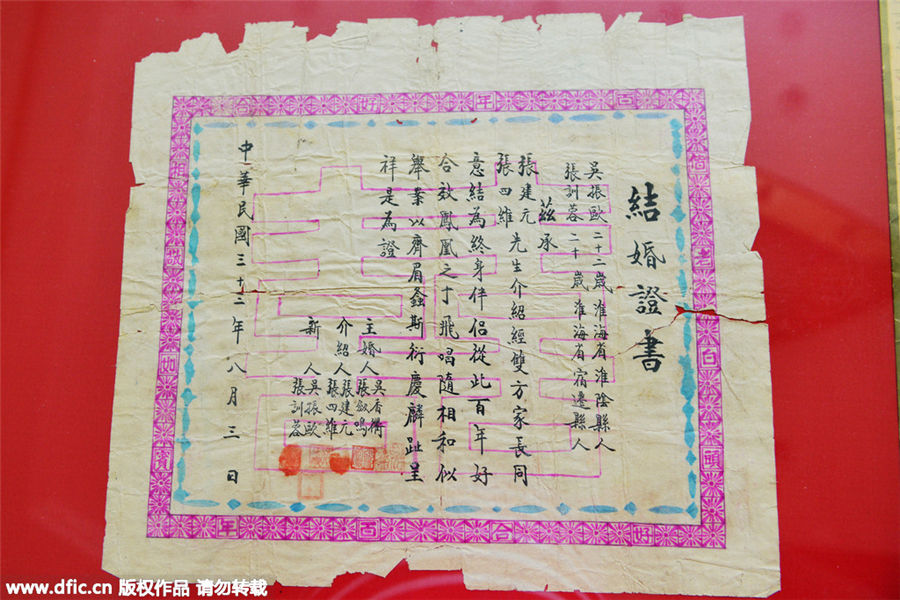 結婚證書
吳振歐 二十二歲 淮海省淮陰縣人
張訓蓉 二十歲 淮海省宿遷縣人
茲承
張建元
張四維
先生介紹經雙方家長同
意結為終身伴侶從此百年好
合效鳳凰之于飛唱隨相和似
舉案以齊眉螽斯衍慶麟趾呈
祥是為證
主婚人 吳香
張叙鳴
介紹人 張建元
張四維
新人 吳振歐
張訓蓉
中華民國三十二年八月三日
百年好合
偕老白頭
百年合好
相敬如賓
www.dfic.cn 版权作品 请勿转载